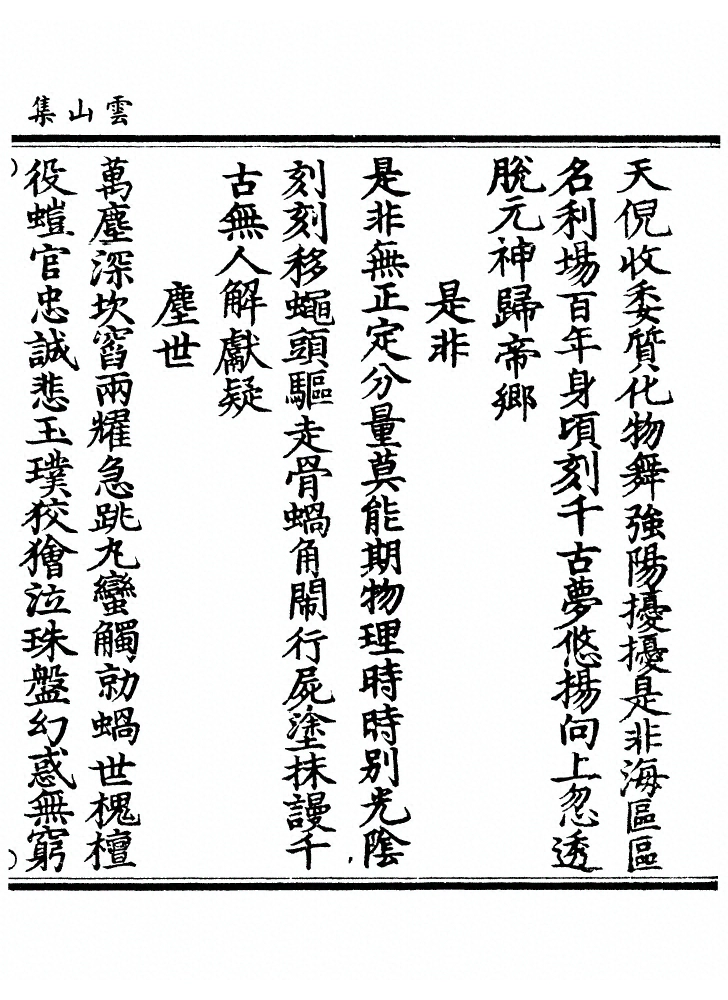 雲山集
天倪收委質化物舞強陽擾擾是非海區區
名利場百年身頃刻千古夢悠揚向上忽透
脫元神歸帝鄉
是非
是非無正定分量莫能期物理時時別光陰
刻刻移蠅頭驅走骨蝸角鬧行屍塗抹謾千
古無人解獻疑
塵世
萬塵深坎窞兩耀急跳丸蠻觸勍蝸世槐檀
役螘官忠誠悲玉璞狡獪泣珠盤幻惑無窮